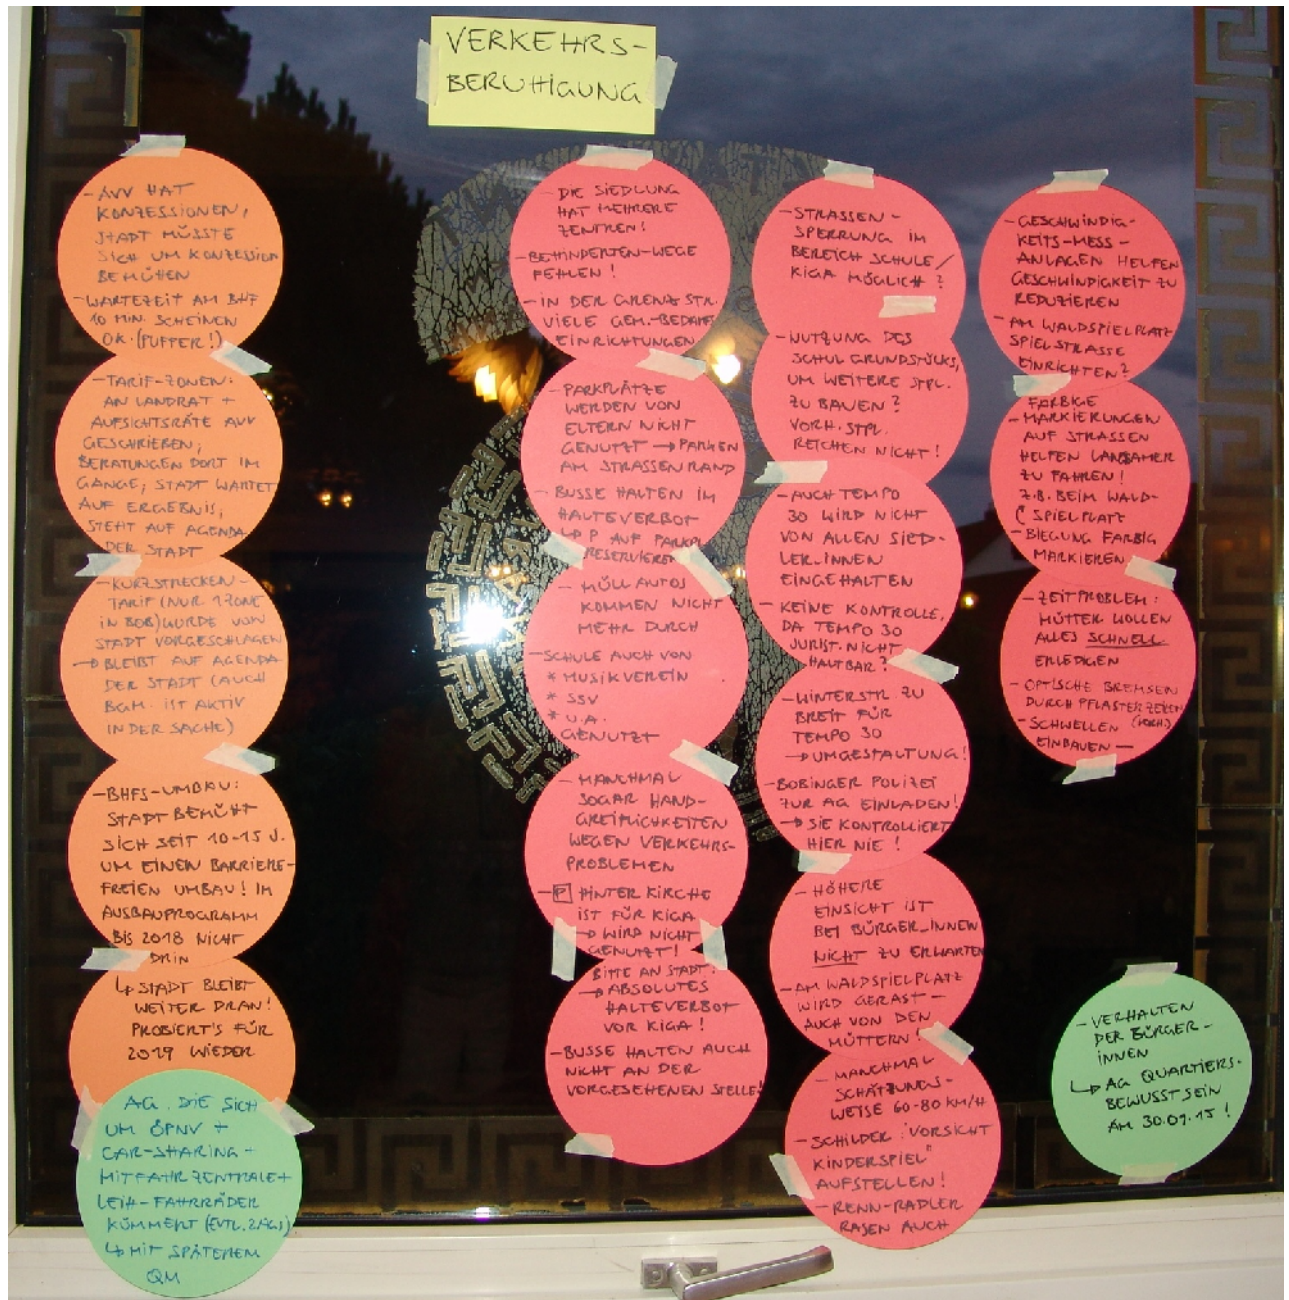 VERKEHRS-
BERUHIGUNG
- AVV HAT
KONZESSIONEN,
STADT MÜSSTE
SICH UM KONZESSION
BEMÜHEN
- WARTEZEIT AM BHF
10 MIN. SCHEINEN
OK. (PUFFER!)
- TARIF-ZONEN:
AN LANDRAT +
AUFSICHTSRÄTE AVV
GESCHRIEBEN;
BERATUNGEN DORT IM
GANGE; STADT WARTET
AUF ERGEBNIS;
STEHT AUF AGENDA
DER STADT
- KURZSTRECKEN-
TARIF (NUR 1 ZONE
IN BOB) WURDE VON
STADT VORGESCHLAGEN
→ BLEIBT AUF AGENDA
DER STADT (AUCH
BGM. IST AKTIV
IN DER SACHE)
- BHFS-UMBAU:
STADT BEMÜHT
SICH SEIT 10-15 J.
UM EINEN BARRIERE-
FREIEN UMBAU! IM
AUSBAUPROGRAMM
BIS 2018 NICHT
DRIN
↳ STADT BLEIBT
WEITER DRAN!
PROBIERT'S FÜR
2019 WIEDER
AG, DIE SICH
UM ÖPNV +
CAR-SHARING +
MITFAHRZENTRALE +
LEIH-FAHRRÄDER
KÜMMERT (EVTL. 2 AGs)
↳ MIT SPÄTEREM
QM
- DIE SIEDLUNG
HAT MEHRERE
ZENTREN!
- BEHINDERTEN-WEGE
FEHLEN!
- IN DER GRENZSTR.
VIELE GEM.-BEDARFS
EINRICHTUNGEN
- PARKPLÄTZE
WERDEN VON
ELTERN NICHT
GENUTZT → PARKEN
AM STRASSENRAND
- BUSSE HALTEN IM
HALTEVERBOT
↳ P AUF PARKPL.
RESERVIEREN
- MÜLLAUTOS
KOMMEN NICHT
MEHR DURCH
- SCHULE AUCH VON
* MUSIKVEREIN
* SSV
* U.A.
GENUTZT
- MANCHMAL
SOGAR HAND-
GREIFLICHKEITEN
WEGEN VERKEHRS-
PROBLEMEN
- P HINTER KIRCHE
IST FÜR KIGA
→ WIRD NICHT
GENUTZT!
BITTE AN STADT:
→ ABSOLUTES
HALTEVERBOT
VOR KIGA!
- BUSSE HALTEN AUCH
NICHT AN DER
VORGESEHENEN STELLE!
- STRASSEN-
SPERRUNG IM
BEREICH SCHULE/
KIGA MÖGLICH?
- NUTZUNG DES
SCHULGRUNDSTÜCKS,
UM WEITERE STPL.
ZU BAUEN?
VORH. STPL.
REICHEN NICHT!
- AUCH TEMPO
30 WIRD NICHT
VON ALLEN SIED-
LER_INNEN
EINGEHALTEN
- KEINE KONTROLLE,
DA TEMPO 30
JURIST. NICHT
HALTBAR?
- WINTERSTR. ZU
BREIT FÜR
TEMPO 30
→ UMGESTALTUNG!
- BOBINGER POLIZEI
ZUR AG EINLADEN!
→ SIE KONTROLLIERT
HIER NIE!
- HÖHERE
EINSICHT IST
BEI BÜRGER_INNEN
NICHT ZU ERWARTEN
- AM WALDSPIELPLATZ
WIRD GERAST -
AUCH VON DEN
MÜTTERN!
- MANCHMAL
SCHÄTZUNGS-
WEISE 60-80 KM/H
- SCHILDER "VORSICHT
KINDERSPIEL"
AUFSTELLEN!
- RENN-RADLER
RASEN AUCH
- GESCHWINDIG-
KEITS-MESS-
ANLAGEN HELFEN
GESCHWINDIGKEIT ZU
REDUZIEREN
- AM WALDSPIELPLATZ
SPIELSTRASSE
EINRICHTEN?
FARBIGE
- MARKIERUNGEN
AUF STRASSEN
HELFEN LANGSAMER
ZU FAHREN!
Z.B. BEIM WALD-
SPIELPLATZ
- BIEGUNG FARBIG
MARKIEREN
- ZEITPROBLEM:
MÜTTER WOLLEN
ALLES SCHNELL
ERLEDIGEN
- OPTISCHE BREMSEN
DURCH PFLASTERZEILEN
- SCHWELLEN (VORH.)
EINBAUEN -
- VERHALTEN
DER BÜRGER-
INNEN
↳ AG QUARTIERS-
BEWUSSTSEIN
AM 30.09.15!